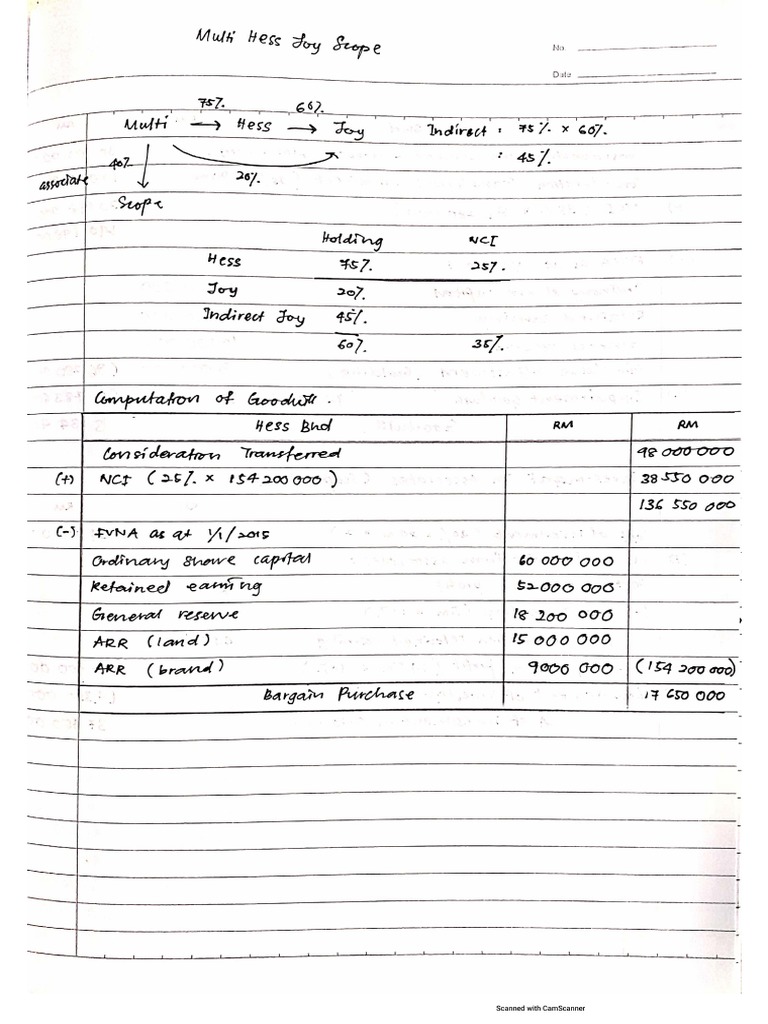 Multi Hess Joy Scope
No.
Date
75%. 60%.
Multi → Hess → Joy Indirect : 75%. x 60%.
40%. : 45%.
associate 20%.
Scope
Holding NCI
Hess 75%. 25%.
Joy 20%.
Indirect Joy 45%.
60%. 35%.
Computation of Goodwill.
Hess Bhd RM RM
Consideration Transferred 98 000000
(+) NCI (25%. x 154 200 000) 38 550 000
136 550 000
(-) FVNA as at 1/1/2015
Ordinary share capital 60 000 000
Retained earning 52000 000
General reserve 18 200 000
ARR (land) 15 000 000
ARR (brand) 9000 000 (154 200 000)
Bargain Purchase 17 650 000
Scanned with CamScanner